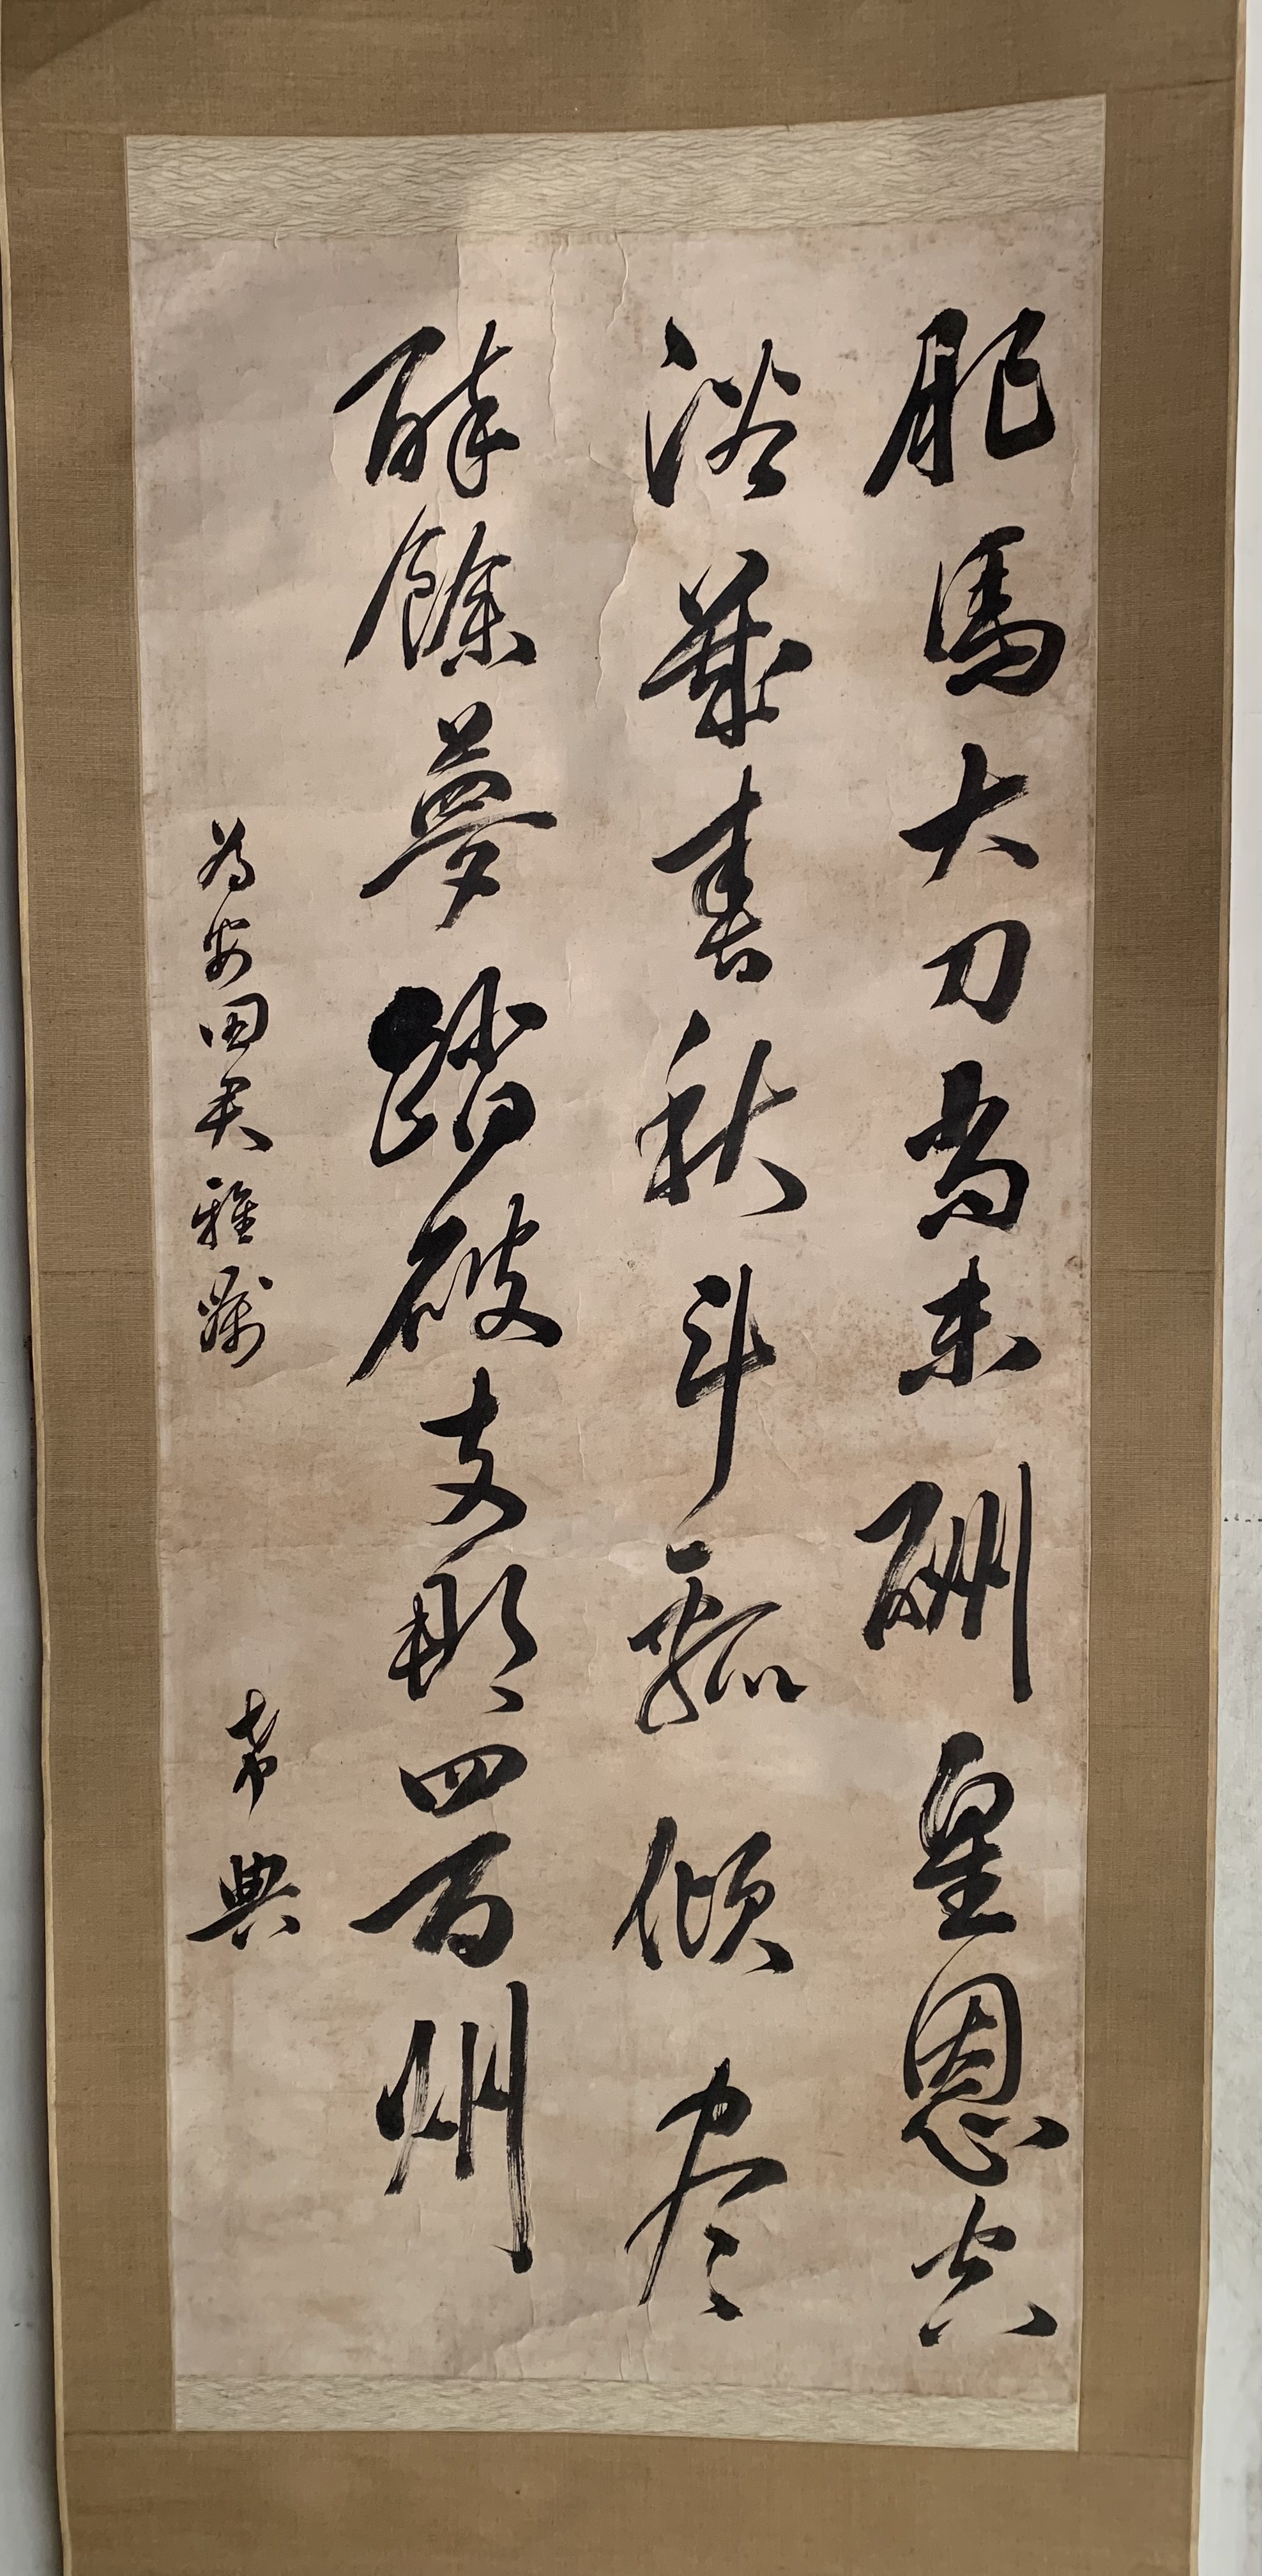 肥馬大刀尚未酬皇恩空
浴幾春秋斗瓢傾尽
酔餘夢踏破支那四百州
為安田君雅嘱 希典